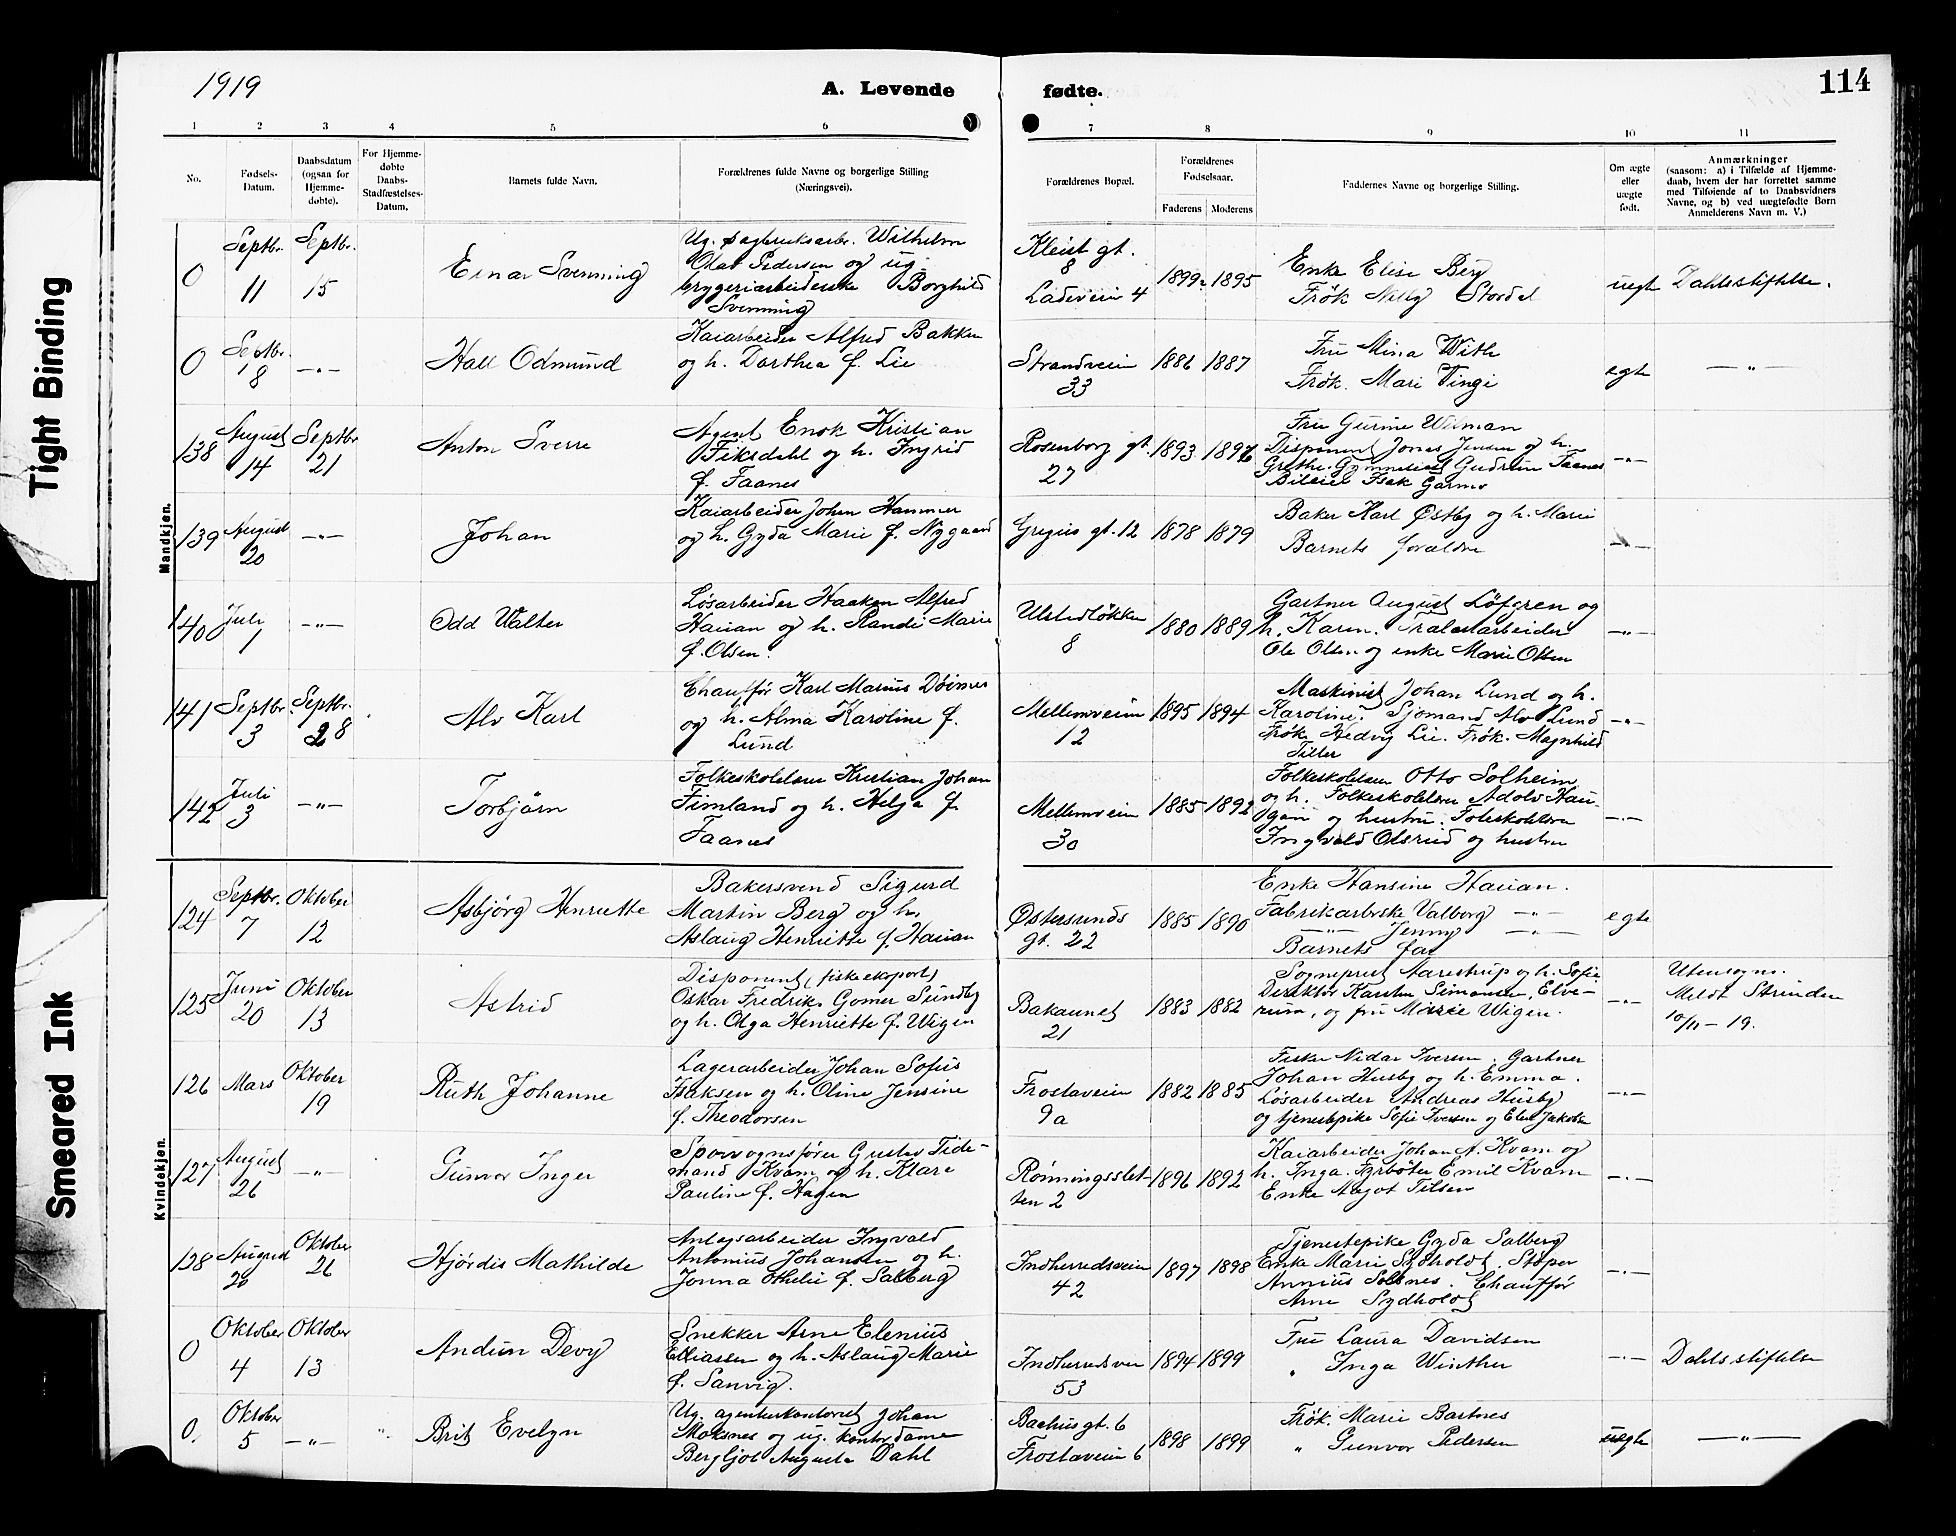 1919
A. Levende fødte.
114
Tight Binding
Smeared Ink
1 2 3 4 5 6 7 8 9 10 11
No.
Fødsels-
Datum.
Daabsdatum
(ogsaa for
Hjemme-
døbte).
For Hjemme-
døbte
Daabs-
Stadfæstelses-
Datum.
Barnets fulde Navn.
Forældrenes fulde Navne og borgerlige Stilling
(Næringsvei).
Forældrenes Bopæl.
Forældrenes
Fødselsaar.
Faderens Moderens
Faddernes Navne og borgerlige Stilling.
Om ægte
eller
uægte
født.
Anmærkninger
(saasom: a) i Tilfælde af Hjemme-
daab, hvem der har forrettet samme
med Tilføiende af to Daabsvidners
Navne, og b) ved uægtefødte Børn
Anmelderens Navn m. V.)
Mandkjøn.
0
Septbr.
11
Septbr.
15
Einar Svenning
Ug. sagbruksarb. Wilhelm
Olav Pedersen og ug.
bryggeriarbeiderske Borghild
Svenning
Kleist gt.
8
Ladeveien 4
1899 1895
Enke Elise Berg
Frøk. Nelly Stordal
uegte
Dahlsstiftelse.
0
Septbr.
18
—"—
Hall Odmund
Kaiarbeider Alfred Bakken
og h. Dorthea f. Lie
Strandveien
33
1886 1887
Fru Mina With
Frøk. Mari Vingi
egte
—"—
138
August
14
Septbr
21
Anton Sverre
Agent Enok Kristian
Fiksdahl og h. Ingrid
f. Faanes
Rosenborg gt.
27
1893 1896
Fru Gurine Wilman
Disponent Jonas Jensen og h.
Grethe. Gymnasiast Gudrun Faanes
Isak Garmo
—"—
139
August
20
—"—
Johan
Kaiarbeider Johan Hammer
og h. Gyda Marie f. Nygaard
Gregus gt. 12
1878 1879
Baker Karl Østby og h. Marie
Barnets forældre
—"—
140
Juli
1
—"—
Odd Walter
Løsarbeider Haakon Alfred
Hauan og h. Randi Marie
f. Olsen.
Ulstadløkken
8
1880 1889
Gartner August Löfgren og
h. Karen.
Ole Olsen og enke Marie Olsen
—"—
141
Septbr.
3
Septbr.
28
Alv Karl
Chauffør Karl Marius
og h. Alma Karoline f.
Lund
Mellemveien
12
1895 1894
Maskinist Johan Lund og h.
Karoline. Sjømand Alv Lund
Frøk Hedvig Lie. Frøk. Magnhild
Tiller
—"—
142
Juli
3
—"—
Torbjørn
Folkeskolelærer Kristian Johan
Fimland og h. Helga f.
Faanes
Mellemveien
30
1885 1892
Folkeskolelærer Otto Solheim
og h. Folkeskolelærer Adolv Hau-
gan og hustru. Folkeskolelærer
Ingvald Olsrud og hustru
—"—
Kvindekjøn.
124
Septbr.
7
Oktober
12
Asbjørg Henriette
Bakersvend Sigurd
Martin Berg og h.
Aslaug Henriette f. Hauan
Østersunds
gt. 22
1885 1890
Enke Hansine Hauan.
Fabrikarbrske Valborg —"—
—"— Jenny —"—
Barnets far
egte
125
Juni
20
Oktober
13
Astrid
Disponent (fiskeeksport)
Oskar Fredrik Gomer Sundby
og h. Olga Henriette f. Wigen
Bakaunet
21
1883 1882
Sogneprest Aarestrup og h. Sofie
Direktør Karsten Simonsen, Elve-
rum, og fru Marie Wigen.
—"—
Utensogns.
Meldt Strinden
10/11 – 19.
126
Mars
Oktober
19
Ruth Johanne
Lagerarbeider Johan Sofus
Isaksen og h. Oline Jensine
f. Theodorsen
Frostaveien
9a
1882 1885
Fisker Nidar Iversen. Gartner
Johan Husby og h. Emma.
Løsarbeider Andreas Husby
og tjenestepike Sofie Iversen og Elen Jakobsen
—"—
127
August
26
—"—
Gunvor Inger
Sporvognsfører Gustav Tide-
mand Kvam og h. Klara
Pauline f. Hagen
Rønningsslet-
ten 2
1896 1892
Kaiarbeider Johan A. Kvam og
h. Inga. Fyrbøter Emil Kvam
Enke Magot Tilsen
—"—
128
August
20
Oktober
26
Hjørdis Mathilde
Anlegsarbeider Ingvald
Antonius Johansen og h.
Jonna Othelie f. Salberg
Indherredsveien
42
1897 1898
Tjenestepike Gyda Salberg
Enke Marie Sydholdt. Støper
Annius Soltnes. Chauffør
Arne Sydholdt
—"—
0
Oktober
4
Oktober
13
Andun Devy
Snekker Arne Elenius
Elliassen og h. Aslaug Marie
f. Sanvig.
Indherredsvei
53
1894 1899
Fru Laura Davidsen
" Inga Winther
—"—
Dahlsstiftelse
0.
Oktober
5
—"—
Brit Evelyn
Ug. agenturkontorist Johan
Moksnes og ug. kontordame
Bergljot Augusta Dahl
Bachus gt. 6
Frostaveien 6
1898 1899
Frøk. Marie Bartnes
" Gunvor Pedersen
uegte
—"—